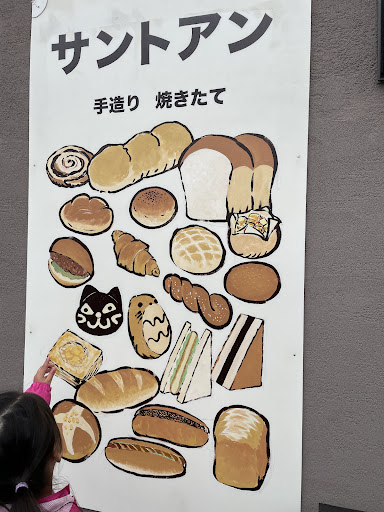 サントアン
手造り 焼きたて